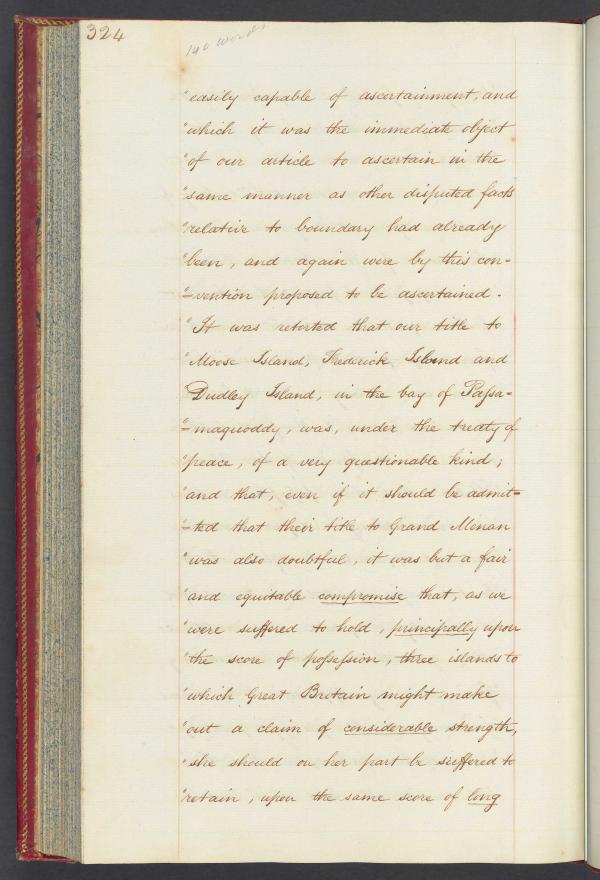 324
140 words
"easily capable of ascertainment, and
"which it was the immediate object
"of our article to ascertain in the
"same manner as other disputed facts
"relative to boundary had already
"been, and again were by this con=
"=vention proposed to be ascertained.
"It was retorted that our title to
"Moose Island, Frederick Island and
"Dudley Island, in the bay of Paſsa=
"=maquoddy, was, under the treaty of
"peace, of a very questionable kind;
"and that, even if it should be admit=
"=ted that their title to Grand Menan
"was also doubtful, it was but a fair
"and equitable compromise that, as we
"were suffered to hold, principally upon
"the score of poſseſsion, three islands to
"which Great Britain might make
"out a claim of considerable strength,
"she should on her part be suffered to
"retain, upon the same score of long